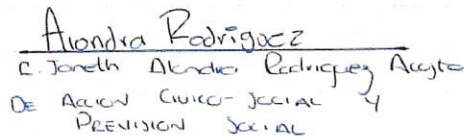 Alondra Rodriguez
C. Janeth Alondra Rodriguez
DE ACCION CIVICO-SOCIAL Y
PREVISION SOCIAL